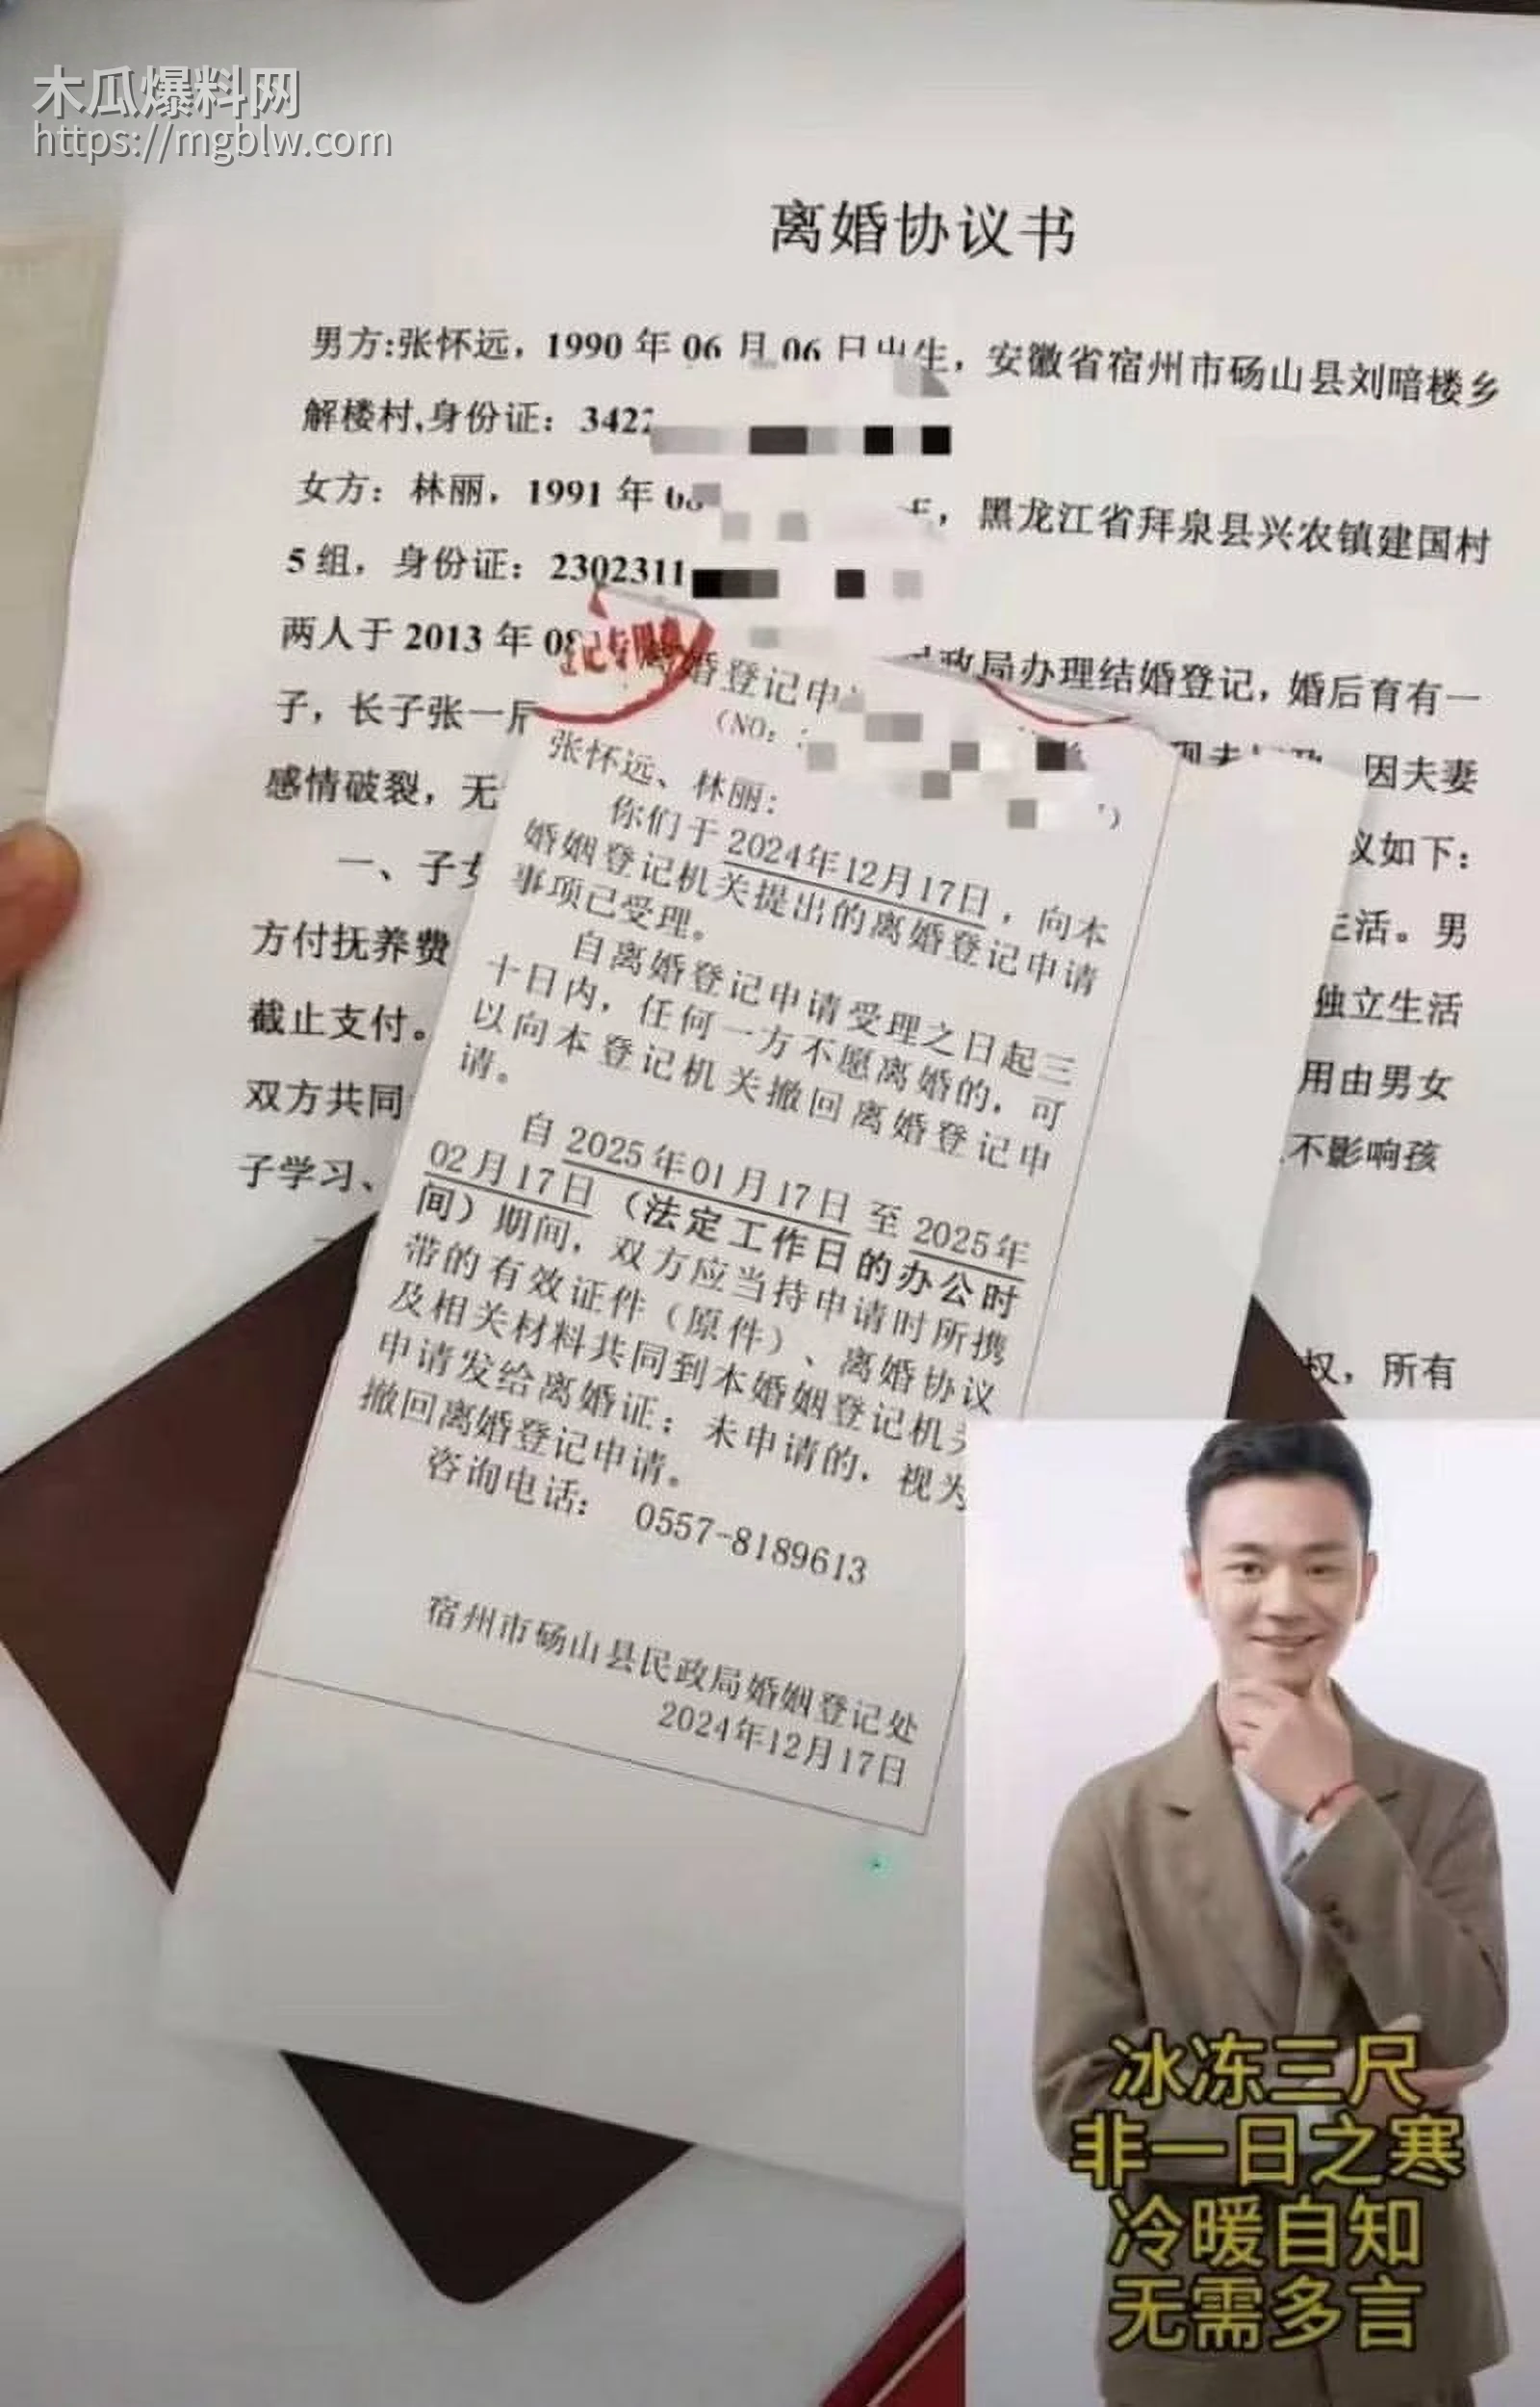 木瓜爆料网
https://mgblw.com
离婚协议书
男方:张怀远，1990 年 06 月 06 日出生，安徽省宿州市砀山县刘暗楼乡
解楼村,身份证：3422
女方：林丽，1991 年
，黑龙江省拜泉县兴农镇建国村
5 组，身份证：2302311
两人于 2013 年
民政局办理结婚登记，婚后育有一
子，长子张一
感情破裂，无
因夫妻
议如下：
一、子女
生活。男
方付抚养费
独立生活
截止支付。
用由男女
双方共同
不影响孩
子学习、
权，所有
记专用章
离婚登记申
（NO：
张怀远、林丽：
你们于 2024年12月17日，向本
婚姻登记机关提出的离婚登记申请
事项已受理。
自离婚登记申请受理之日起三
十日内，任何一方不愿离婚的，可
以向本登记机关撤回离婚登记申
请。
自 2025年01月17日 至 2025年
02月17日（法定工作日的办公时
间）期间，双方应当持申请时所携
带的有效证件（原件）、离婚协议
及相关材料共同到本婚姻登记机关
申请发给离婚证；未申请的，视为
撤回离婚登记申请。
咨询电话： 0557-8189613
宿州市砀山县民政局婚姻登记处
2024年12月17日
冰冻三尺
非一日之寒
冷暖自知
无需多言